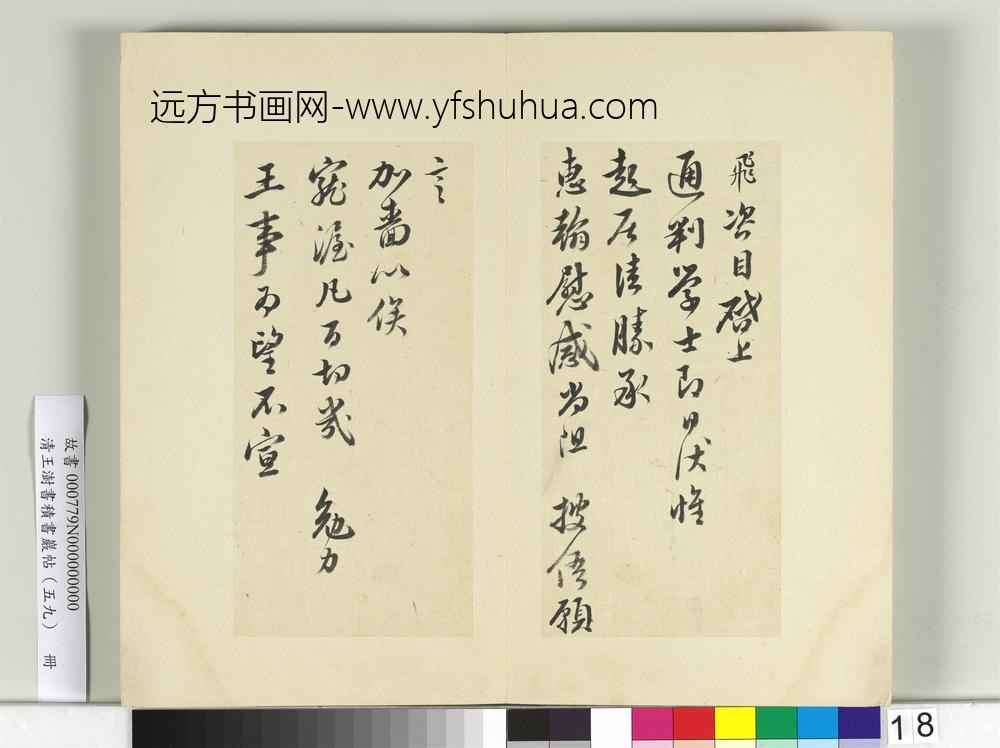 远方书画网-www.yfshuhua.com
飛咨目啓上
通判学士即日伏惟
起居清勝承
惠翰慰感尚阻 披俉願
言
加嗇以俟
寵渥凡百切幾 勉力
王事为望不宣
故書 000779N000000000
清王澍書積書巖帖(五九) 冊
18